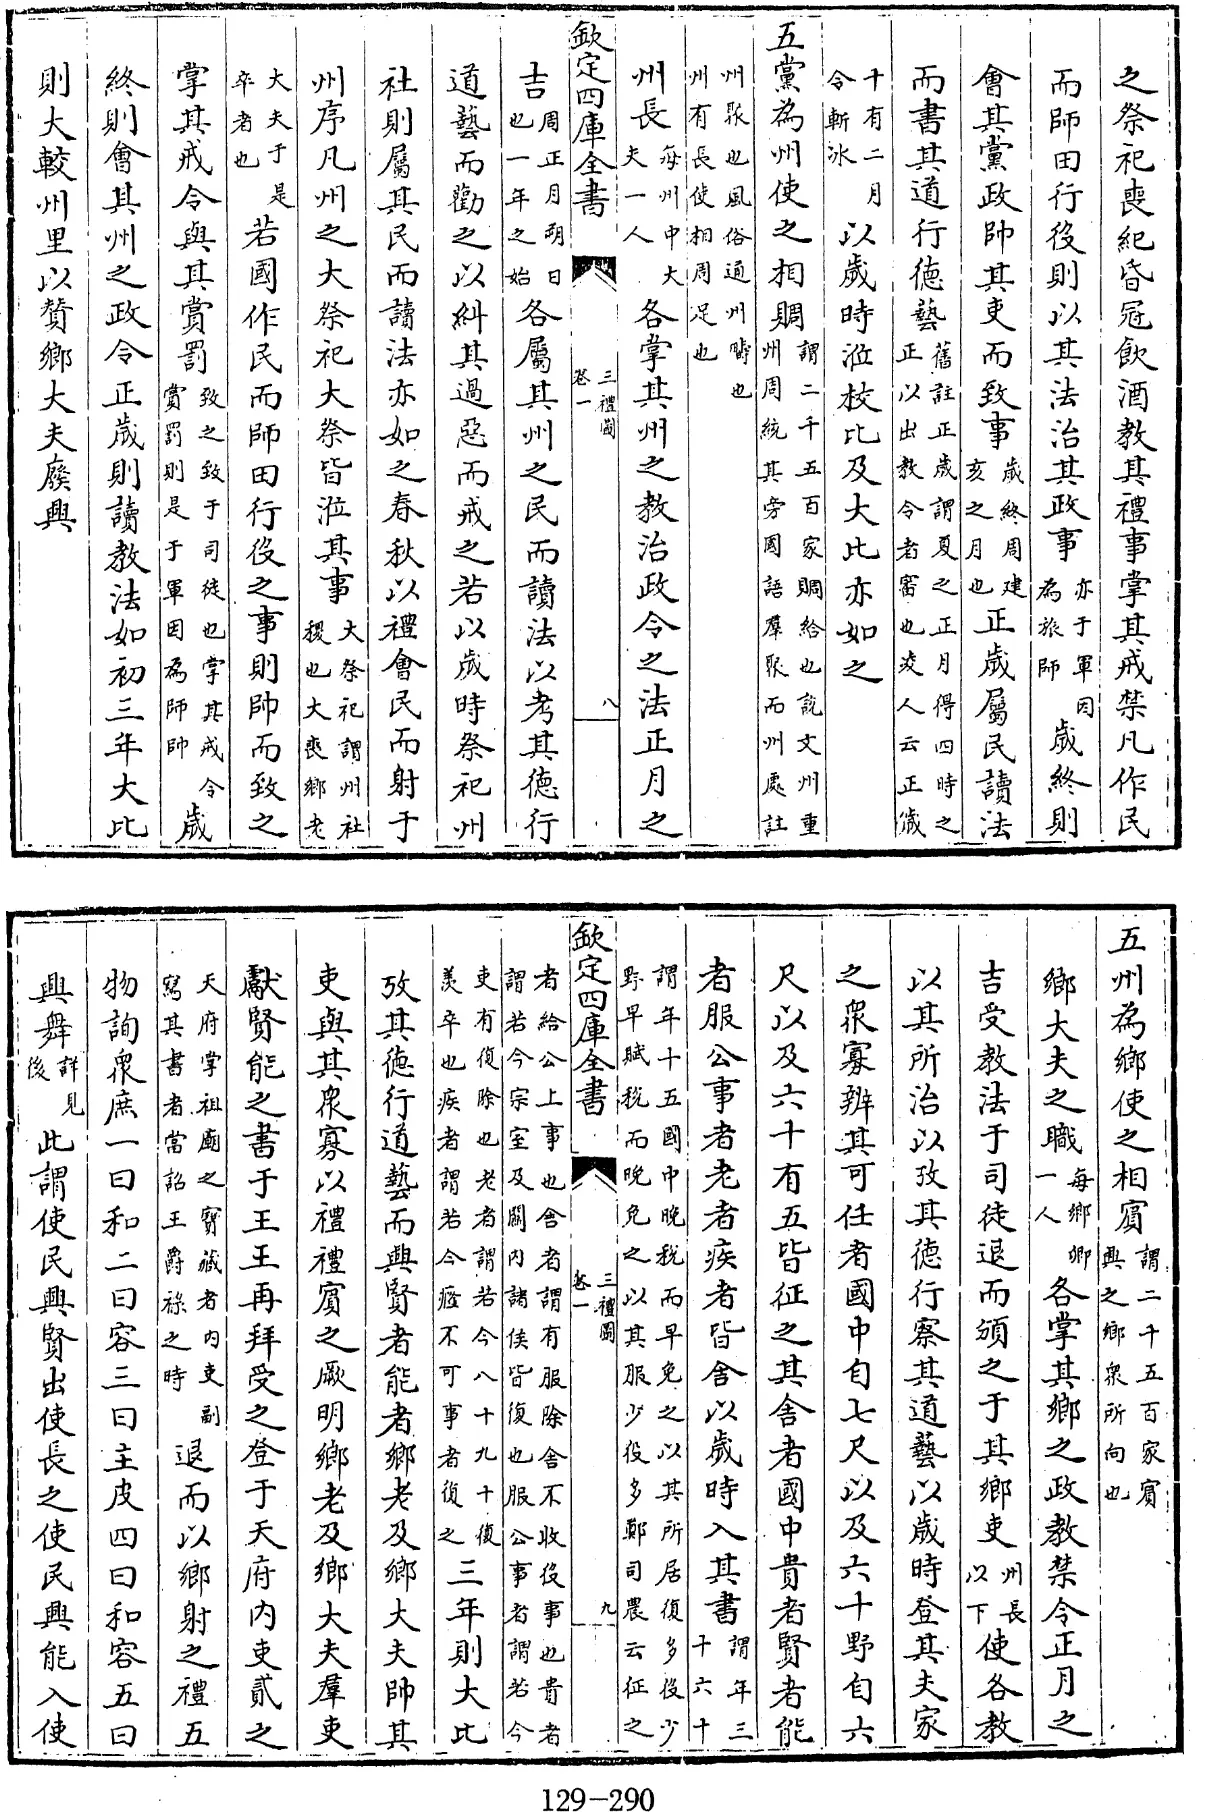 之祭祀喪紀昏冠飲酒教其禮事掌其戒禁凡作民
而師田行役則以其法治其政事亦于軍因為旅師歲終則
會其黨政帥其吏而致事歲終周建亥之月也正歲屬民讀法
而書其道行德藝舊註正歲謂夏之正月得四時之正以出教令者審也凌人云正歲
十有二月令斬冰以歲時涖校比及大比亦如之
五黨為州使之相賙謂二千五百家賙給也說文州重州周統其旁國語羣聚而州處註
州聚也風俗通州疇也州有長使相周足也
州長每州中大夫一人各掌其州之教治政令之法正月之
欽定四庫全書 三禮圖 卷一 八
吉周正月朔日也一年之始各屬其州之民而讀法以考其德行
道藝而勸之以糾其過惡而戒之若以歲時祭祀州
社則屬其民而讀法亦如之春秋以禮會民而射于
州序凡州之大祭祀大祭皆涖其事大祭祀謂州社稷也大喪鄉老
大夫于是卒者也若國作民而師田行役之事則帥而致之
掌其戒令與其賞罰致之致于司徒也掌其戒令賞罰則是于軍因為師帥歲
終則會其州之政令正歲則讀教法如初三年大比
則大較州里以贊鄉大夫廢興
五州為鄉使之相賓謂二千五百家賓興之鄉衆所向也
鄉大夫之職每鄉卿一人各掌其鄉之政教禁令正月之
吉受教法于司徒退而頒之于其鄉吏州長以下使各教
以其所治以攷其德行察其道藝以歲時登其夫家
之衆寡辨其可任者國中自七尺以及六十野自六
尺以及六十有五皆征之其舍者國中貴者賢者能
者服公事者老者疾者皆舍以歲時入其書謂年三十六十
謂年十五國中晚稅而早免之以其所居復多役少野早賦稅而晚免之以其服少役多鄭司農云征之
欽定四庫全書 三禮圖 卷一 九
者給公上事也舍者謂有服除舍不收役事也貴者謂若今宗室及關內諸侯皆復也服公事者謂若今
吏有復除也老者謂若今八十九十復羨卒也疾者謂若今癃不可事者復之三年則大比
攷其德行道藝而興賢者能者鄉老及鄉大夫帥其
吏與其衆寡以禮禮賓之厥明鄉老及鄉大夫羣吏
獻賢能之書于王王再拜受之登于天府內吏貳之
天府掌祖廟之寶藏者內吏副寫其書者當詔王爵祿之時退而以鄉射之禮五
物詢衆庶一曰和二曰容三曰主皮四曰和容五曰
興舞詳見後此謂使民興賢出使長之使民興能入使
129-290